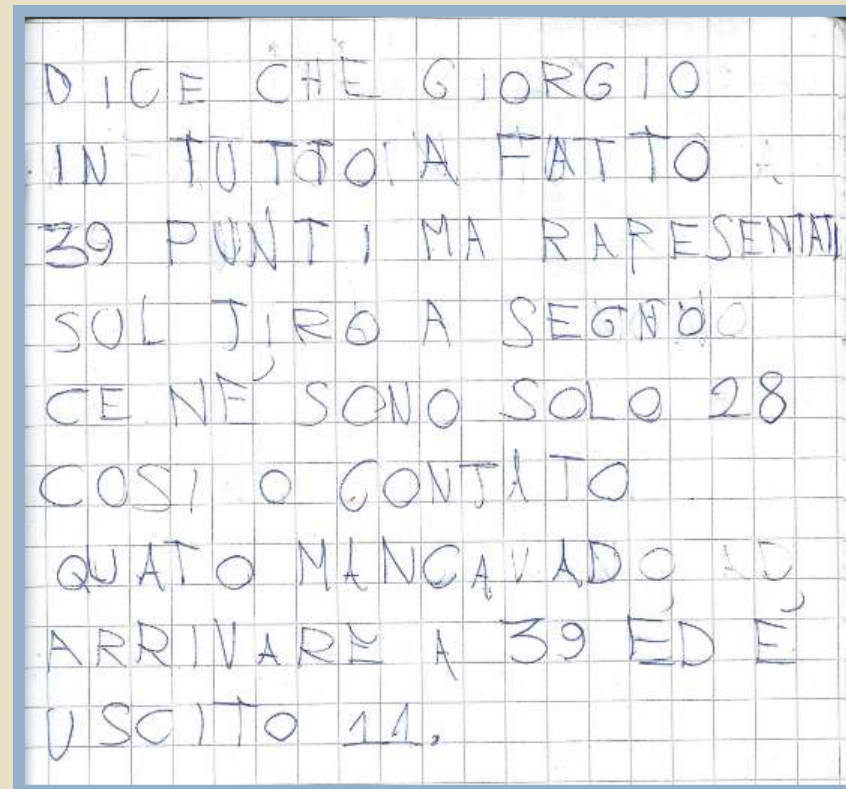 DICE CHE GIORGIO
IN TUTTO A FATTO
39 PUNTI MA RAPESENTATI
SUL TIRO A SEGNO
CE NÉ SONO SOLO 28
COSI O CONTATO
QUATO MANCAVADO AD
ARRIVARE A 39 ÉD É
USCITO 11.